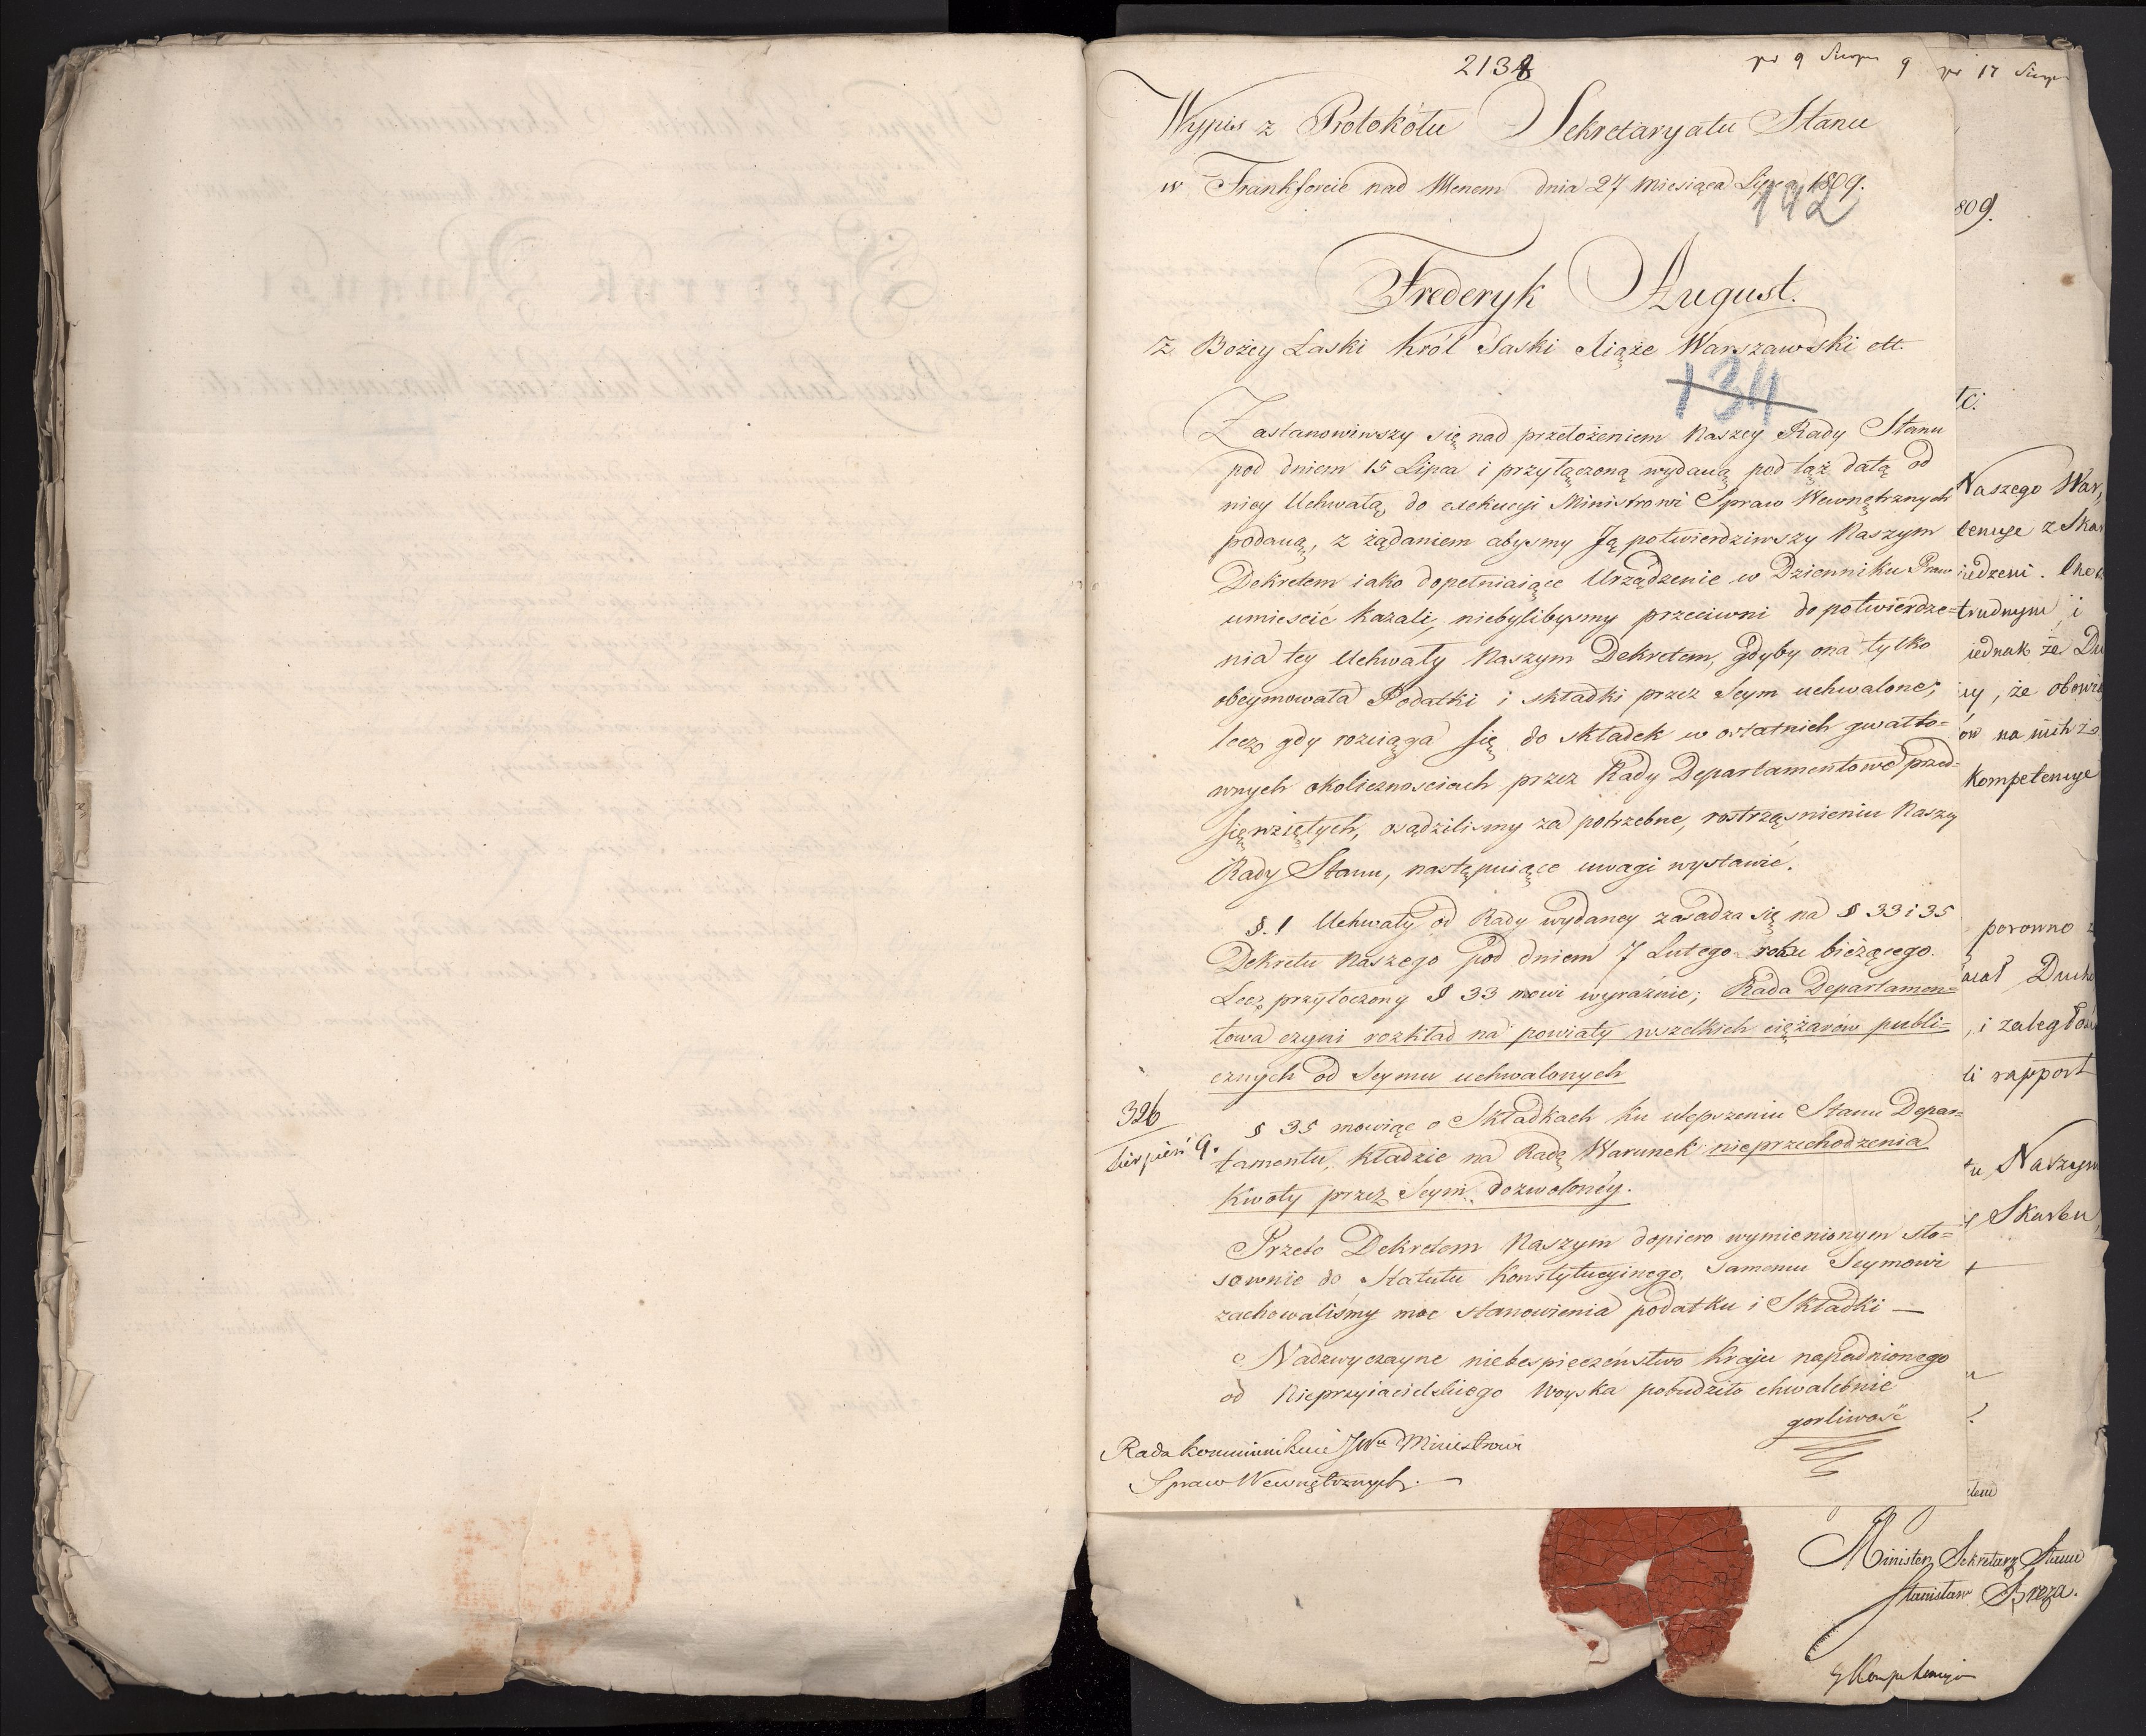 2138
pr 9 Sierpn 9
pr 17 Sierp
Wypis z Protokółu Sekretaryatu Stanu
w Frankforcie nad Menem dnia 27 miesiąca Lipca 1809.
142
809.
Frederyk August.
Z Bożey Łaski Król Saski Xiąże Warszawski ett.
134
tc.
Zastanowiwszy się nad przełożeniem Naszey Rady Stanu
pod dniem 15 Lipca i przyłączoną wydaną pod tąż datą od
niey Uchwałą, do exekucyi Ministrowi Spraw Wewnętrznych
podaną, z żądaniem abysmy Ją potwierdziwszy Naszym
Dekretem iako dopełniaiące Urządzenie w Dzienniku Praw
umiescić kazali, niebylibysmy przeciwni do potwierdze=
nia tey Uchwały Naszym Dekretem, gdyby ona tylko
obeymowała Podatki i składki przez Seym uchwalone;
lecz gdy rozciąga się do składek w ostatnich gwałto=
wnych okolicznosciach przez Rady Departamentowe przed=
sięwziętych, osądzilismy za potrzebne, rostrząsnieniu Naszey
Rady Stanu, następuiące uwagi wystawić.
§. 1 Uchwały od Rady wydaney zasadza się na § 33 i 35
Dekretu Naszego pod dniem 7 Lutego roku bieżącego.
Lecz przytoczony § 33 mowi wyraźnie; Rada Departamen=
towa czyni rozkład na powiaty wszelkich ciężarów publi=
cznych od Seymu uchwalonych
326
Sierpień 9.
§ 35 mowiąc o Składkach ku ulepszeniu Stanu Depar=
tamentu, kładzie na Radę Warunek nieprzechodzenia
kwoty przez Seym dozwoloney.
Przeto Dekretem Naszym dopiero wymienionym sto=
sownie do Statutu Konstytucyinego, samemu Seymowi
zachowaliśmy moc stanowienia podatku i Składki —
Nadzwyczayne niebespieczeństwo Kraju napadnionego
od Nieprzyiacielskiego woyska pobudziło chwalebnie
gorliwość
Rada kommunikuie JWu Ministrowi
Spraw Wewnętrznych. —
Naszego War,
tencye z Skar
iedzeni.
trudnym, i
iednak że Du
ey, że obowią
ów na nich
Kompetencye
porowno z
acał Ducho
, i zaległoś
li rapport
tu Naszym
Skarbu,
Minister Sekretarz Stanu
Stanisław Breza.